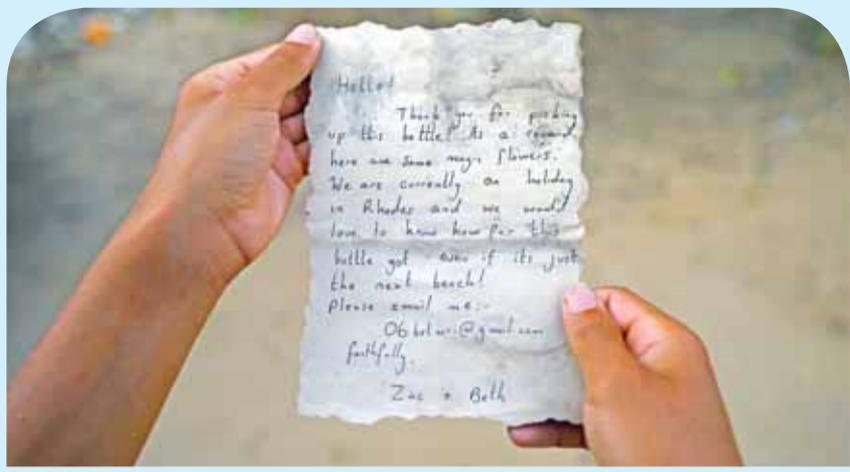 Hello!
Thank you for picking
up this bottle! As a reward
here are some magic flowers.
We are currently on holiday
in Rhodes and we would
love to know how far this
bottle got even if its just
the next beach!
Please email me:-
@gmail.com
faithfully,
Zac + Beth